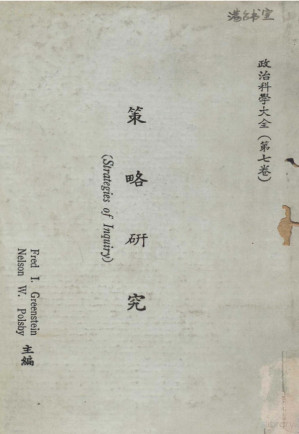 政治科學大全（第七卷）
策略研究
(Strategies of Inquiry)
Fred I. Greenstein
Nelson W. Polsby
主編